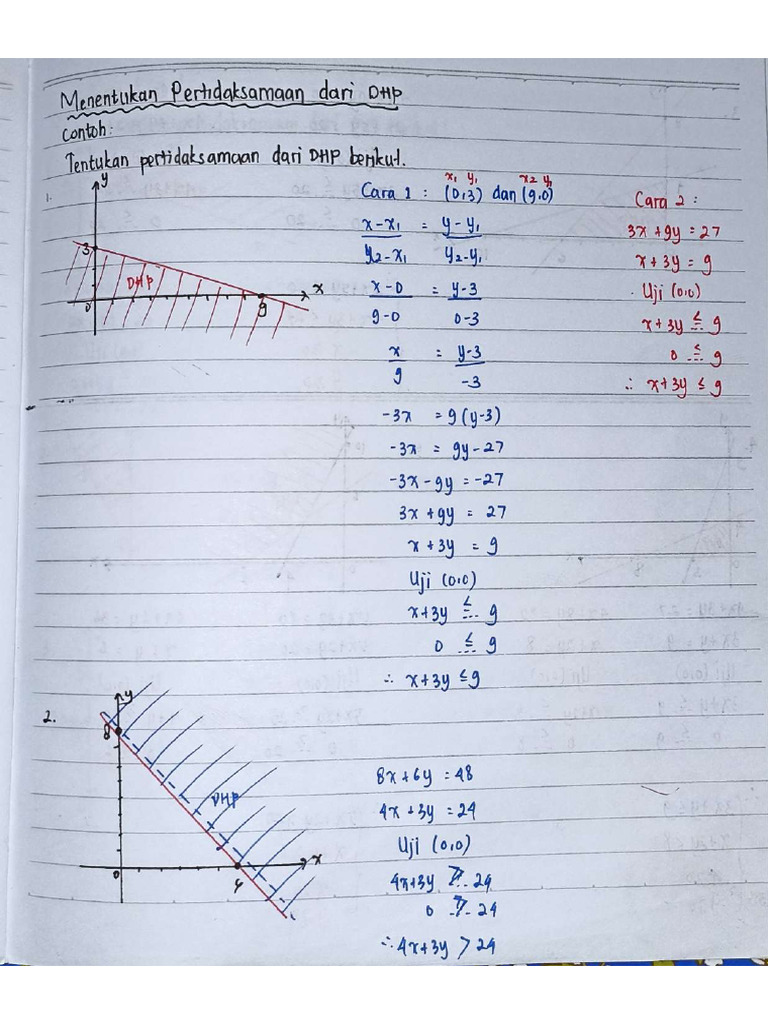 Menentukan Pertidaksamaan dari DHP
Contoh:
Tentukan pertidaksamaan dari DHP berikut.
1.
y
3
DHP
x
0
9
x₁ y₁ x₂ y₂
Cara 1 : (0,3) dan (9,0)
x-x₁ = y-y₁
y₂-x₁ y₂-y₁
x-0 = y-3
9-0 0-3
x = y-3
9 -3
-3x = 9(y-3)
-3x = 9y-27
-3x-9y = -27
3x+9y = 27
x+3y = 9
Uji (0,0)
x+3y ≤ 9
0 ≤ 9
∴ x+3y ≤ 9
Cara 2 :
3x+9y = 27
x+3y = 9
Uji (0,0)
x+3y ≤ 9
0 ≤ 9
∴ x+3y ≤ 9
2.
y
8
DHP
x
0
8x+6y = 48
4x+3y = 24
Uji (0,0)
4x+3y 24
0 24
∴ 4x+3y > 24